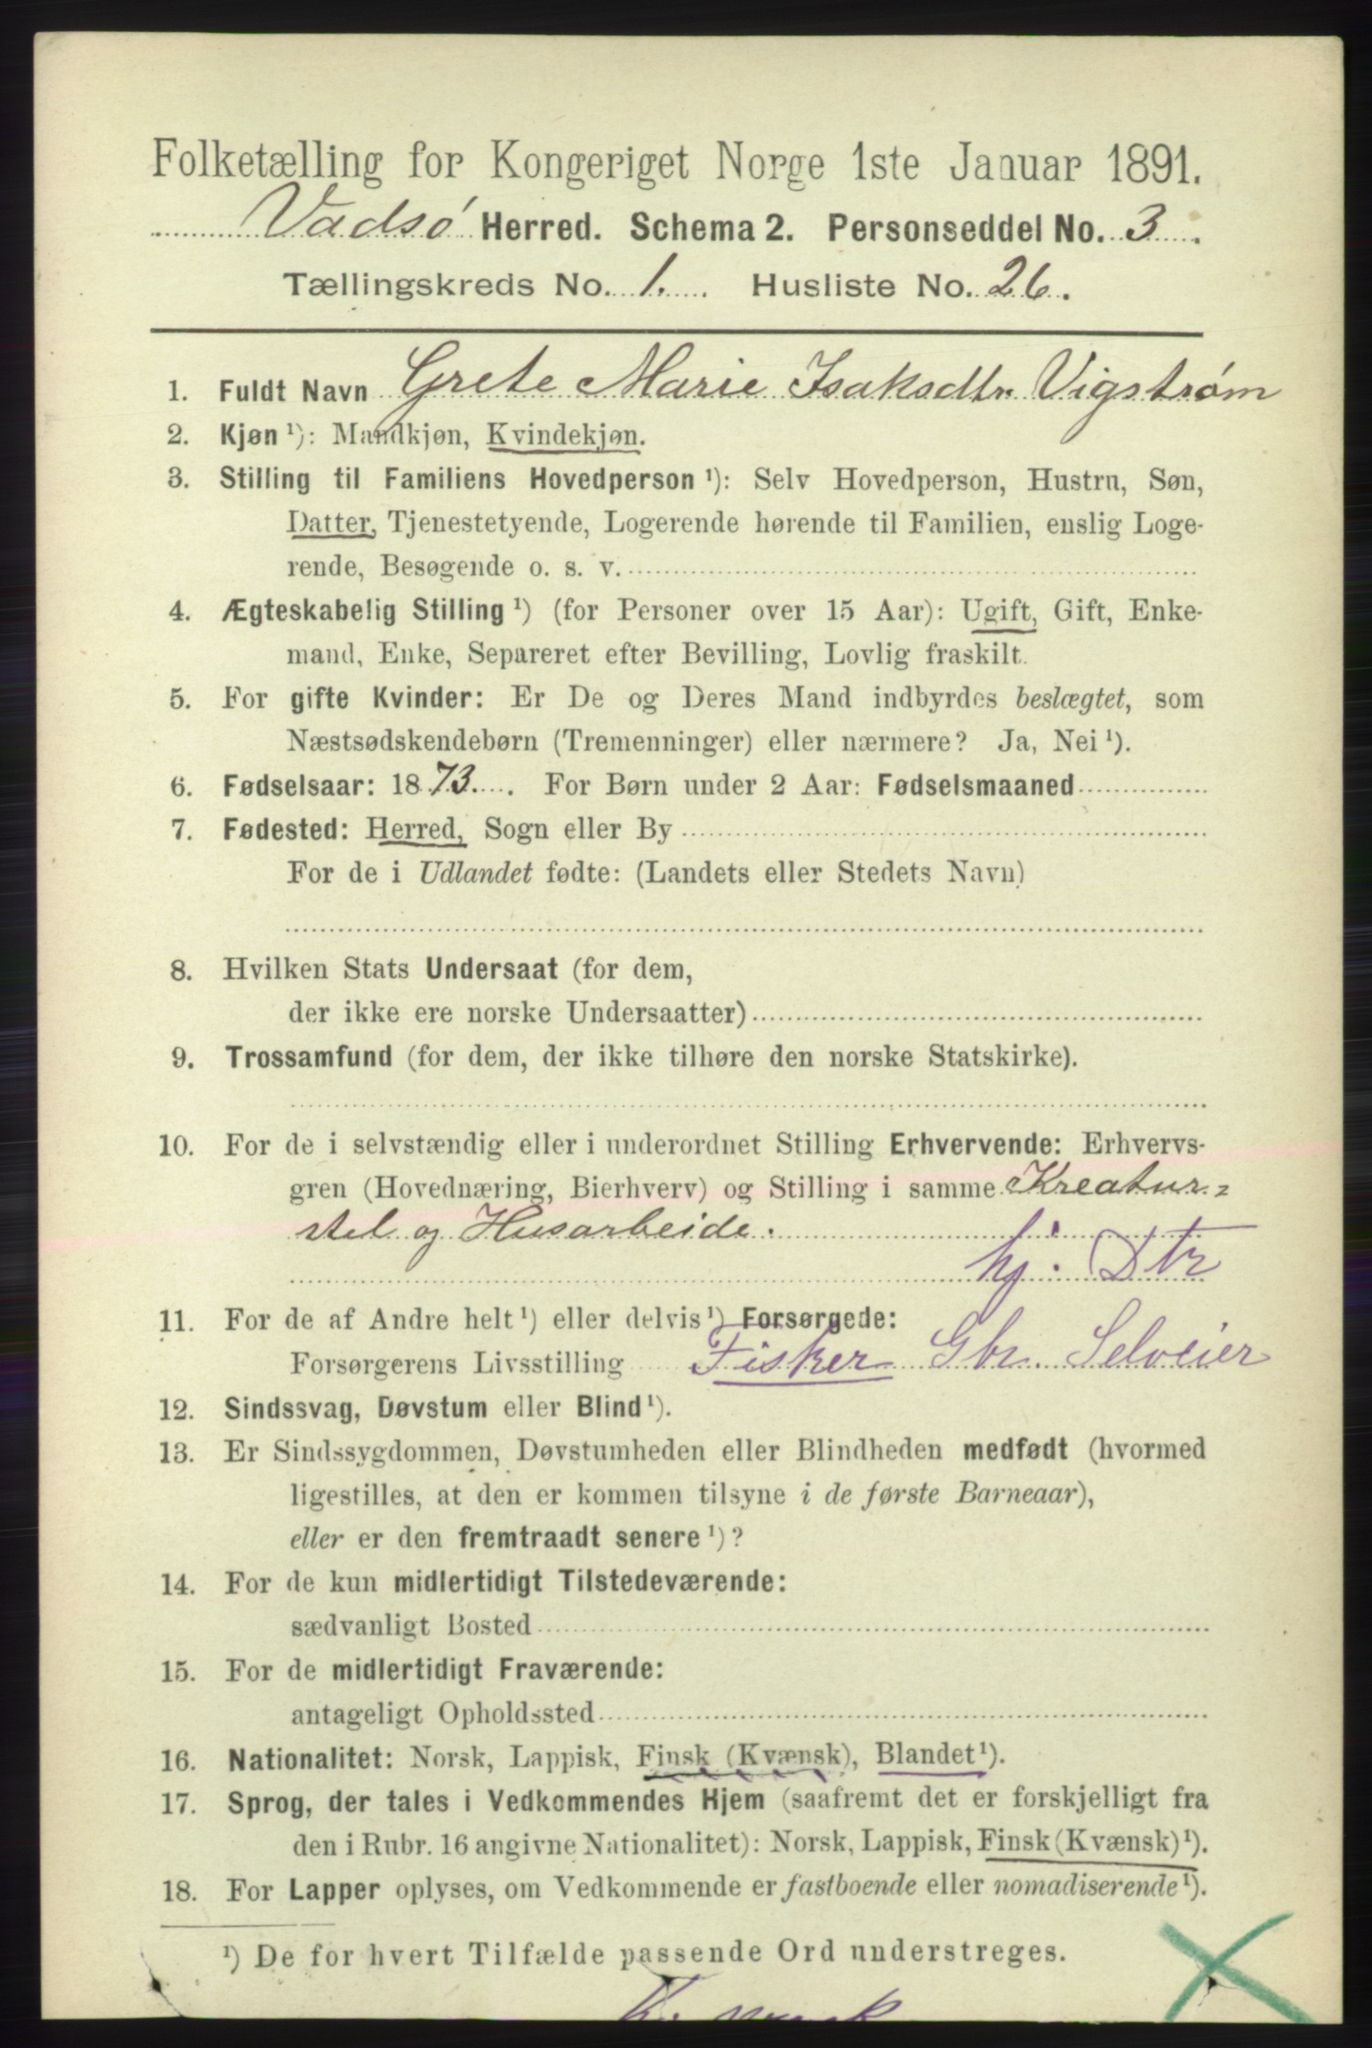 Folketælling for Kongeriget Norge 1ste Januar 1891.
Vadsø Herred. Schema 2. Personseddel No. 3.
Tællingskreds No. 1. Husliste No. 26.
1. Fuldt Navn Grete Marie Isaksdtr. Vigstrøm
2. Kjøn ¹): Mandkjøn, Kvindekjøn.
3. Stilling til Familiens Hovedperson ¹): Selv Hovedperson, Hustru, Søn,
Datter, Tjenestetyende, Logerende hørende til Familien, enslig Loge-
rende, Besøgende o. s. v.
4. Ægteskabelig Stilling ¹) (for Personer over 15 Aar): Ugift, Gift, Enke-
mand, Enke, Separeret efter Bevilling, Lovlig fraskilt.
5. For gifte Kvinder: Er De og Deres Mand indbyrdes beslægtet, som
Næstsødskendebørn (Tremenninger) eller nærmere? Ja, Nei ¹).
6. Fødselsaar: 1873. For Børn under 2 Aar: Fødselsmaaned
7. Fødested: Herred, Sogn eller By
For de i Udlandet fødte: (Landets eller Stedets Navn)
8. Hvilken Stats Undersaat (for dem,
der ikke ere norske Undersaatter)
9. Trossamfund (for dem, der ikke tilhøre den norske Statskirke).
10. For de i selvstændig eller i underordnet Stilling Erhvervende: Erhvervs-
gren (Hovednæring, Bierhverv) og Stilling i samme Kreatur-
stel og Husarbeide.
hj. Dtr
11. For de af Andre helt ¹) eller delvis ¹) Forsørgede:
Forsørgerens Livsstilling Fisker Gbr. Selveier
12. Sindssvag, Døvstum eller Blind ¹).
13. Er Sindssygdommen, Døvstumheden eller Blindheden medfødt (hvormed
ligestilles, at den er kommen tilsyne i de første Barneaar),
eller er den fremtraadt senere ¹)?
14. For de kun midlertidigt Tilstedeværende:
sædvanligt Bosted
15. For de midlertidigt Fraværende:
antageligt Opholdssted
16. Nationalitet: Norsk, Lappisk, Finsk (Kvænsk), Blandet ¹).
17. Sprog, der tales i Vedkommendes Hjem (saafremt det er forskjelligt fra
den i Rubr. 16 angivne Nationalitet): Norsk, Lappisk, Finsk (Kvænsk) ¹).
18. For Lapper oplyses, om Vedkommende er fastboende eller nomadiserende ¹).
¹) De for hvert Tilfælde passende Ord understreges.